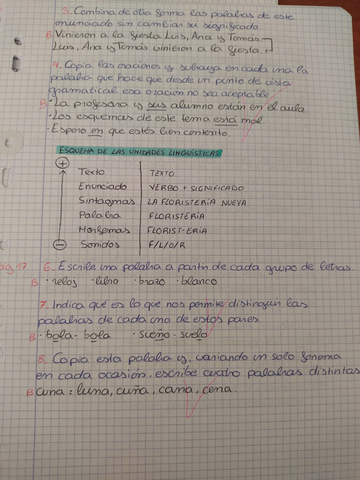 3. Combina de otra forma las palabras de este
enunciado sin cambiar su significado.
B Vinieron a la fiesta Luis, Ana y Tomás
Luis, Ana y Tomás vinieron a la fiesta.
4. Copia las oraciones y subraya en cada una la
palabra que hace que desde un punto de vista
gramatical esa oración no sea aceptable.
B • La profesora y sus alumno están en el aula.
• Los esquemas de este tema está mal
• Espero en que estés bien contesto.
ESQUEMA DE LAS UNIDADES LINGUÍSTICAS
+
Texto TEXTO
Enunciado VERBO + SIGNIFICADO
Sintagmas LA FLORISTERÍA NUEVA
Palabra FLORISTERÍA
Morfemas FLORIST-ERÍA
− Sonidos F/L/O/R
6. Escribe una palabra a partir de cada grupo de letras.
B • reloj • libro • brazo • blanco
7. Indica qué es lo que nos permite distinguir las
palabras de cada uno de estos pares.
B • bola - bola • sueño - suelo
8. Copia esta palabra y, variando un solo fonema
en cada ocasión, escribe cuatro palabras distintas
B Cuna: luna, cuña, cana, cena.